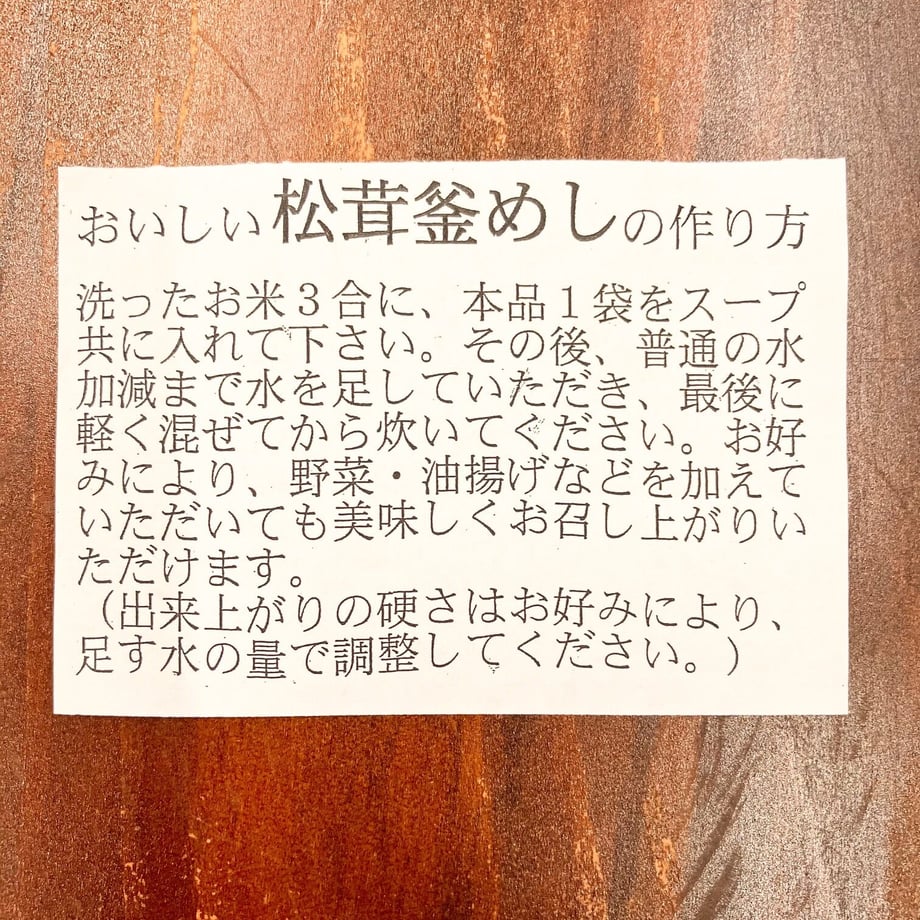 おいしい松茸釜めしの作り方
洗ったお米３合に、本品１袋をスープ
共に入れて下さい。その後、普通の水
加減まで水を足していただき、最後に
軽く混ぜてから炊いてください。お好
みにより、野菜・油揚げなどを加えて
いただいても美味しくお召し上がりい
ただけます。
（出来上がりの硬さはお好みにより、
足す水の量で調整してください。）